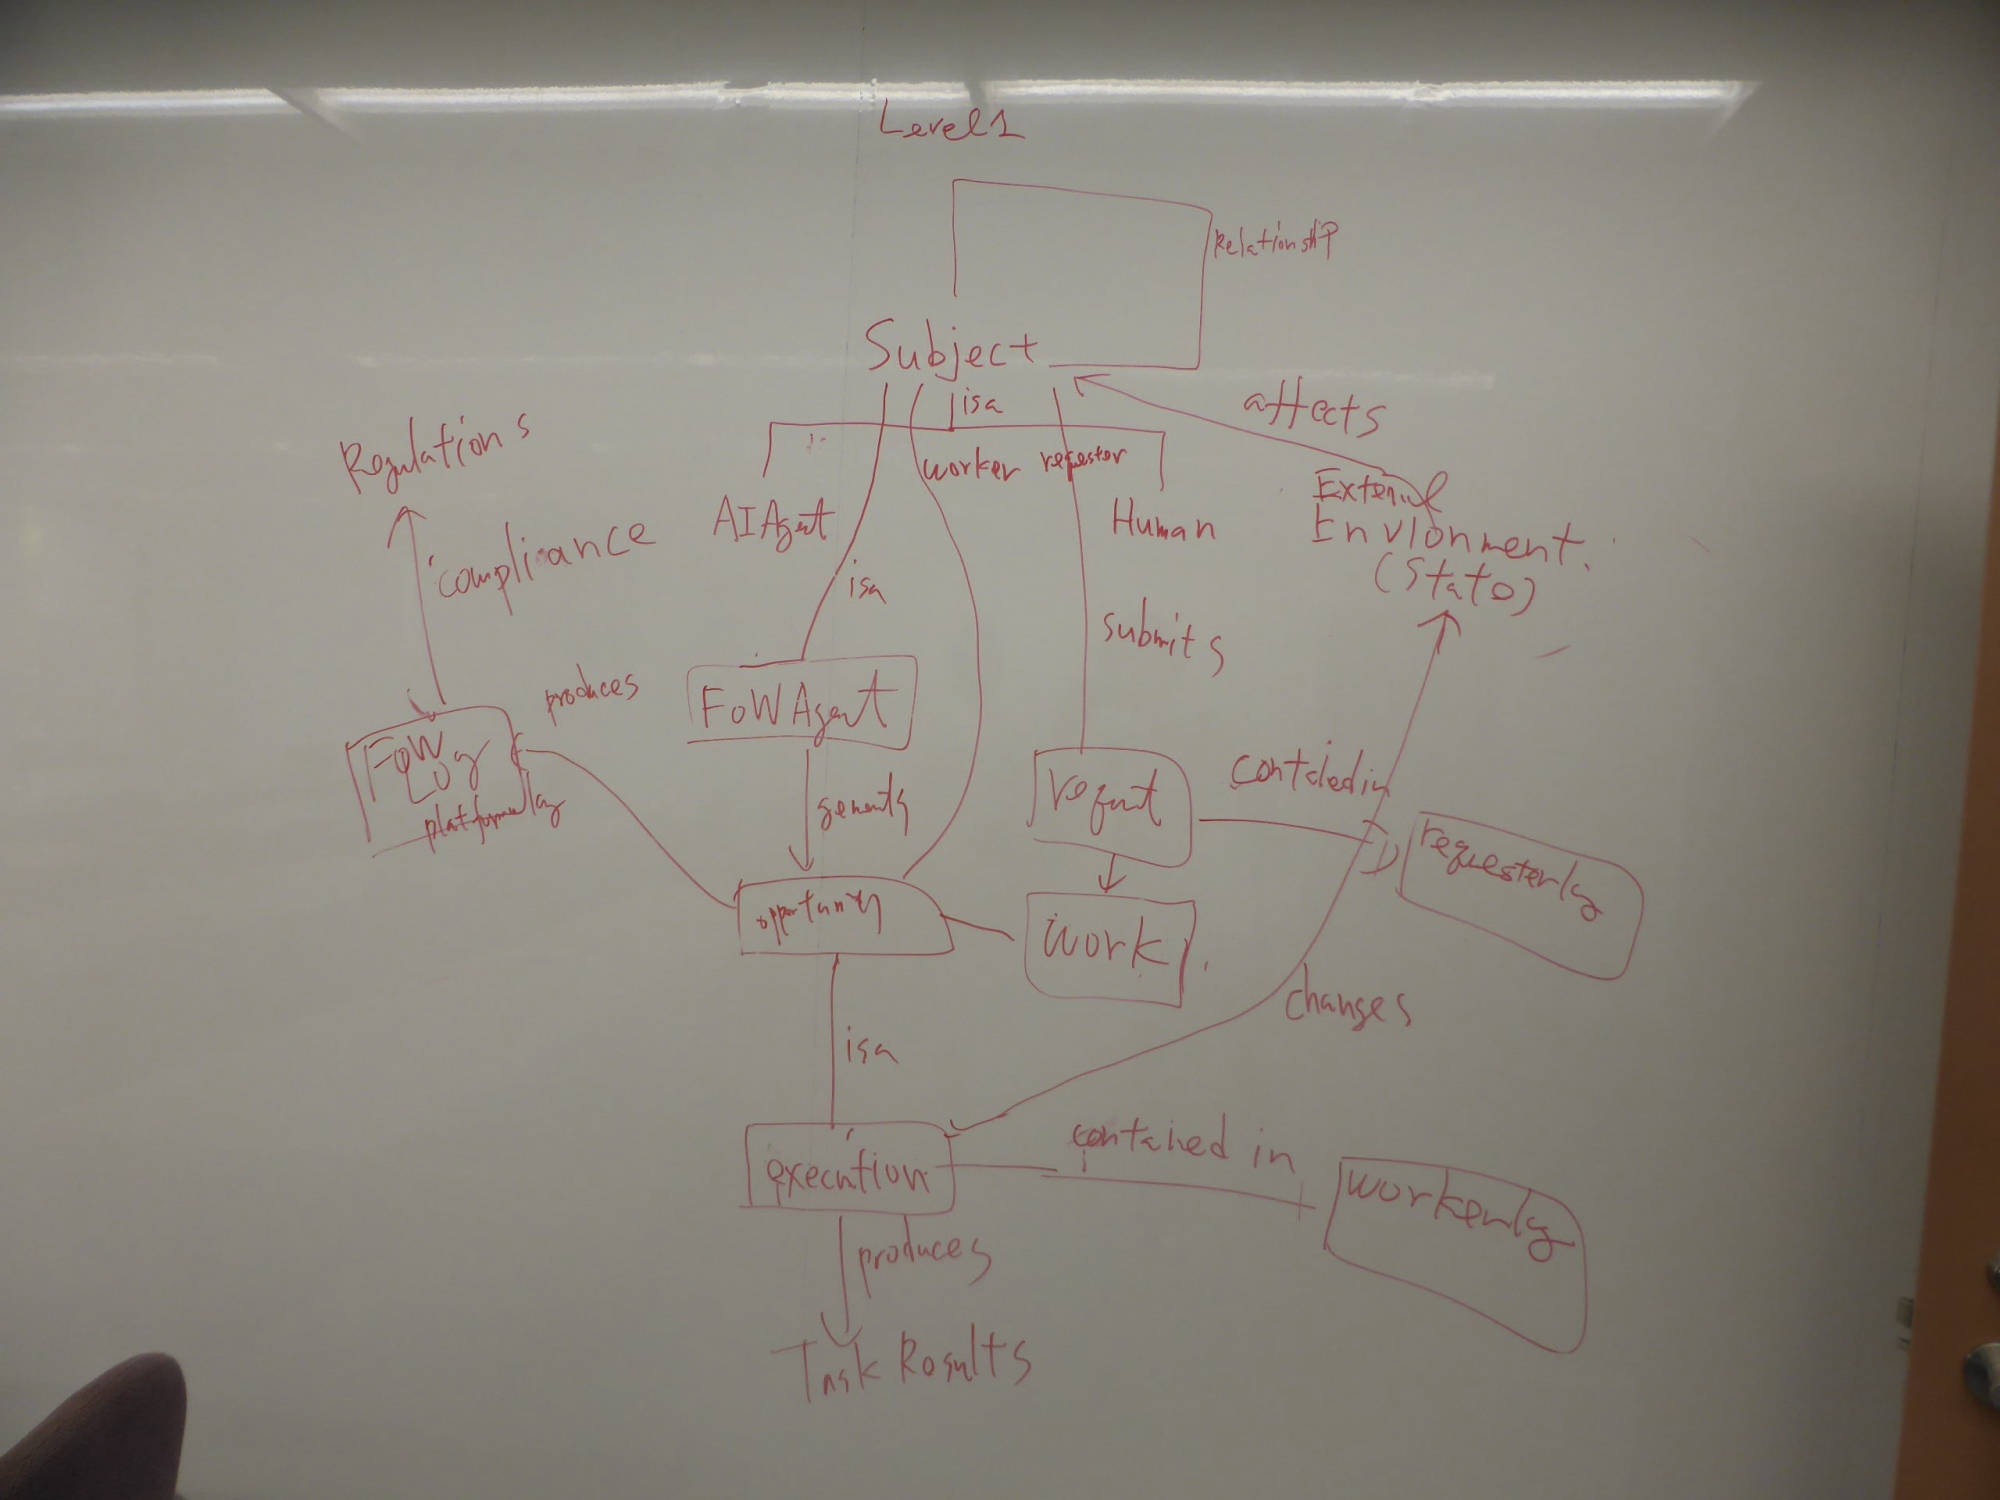 Level 1
RelationshiP
Subject
affects
isa
Regulations
worker requester
AI Agent
Human
External
Envionment.
(State)
compliance
isa
submits
produces
FoW Agent
FoW
Log
platformlog
generates
request
contained in
requesterlog
opportunity
work
changes
isa
contained in
execution
workerlog
produces
Task Results